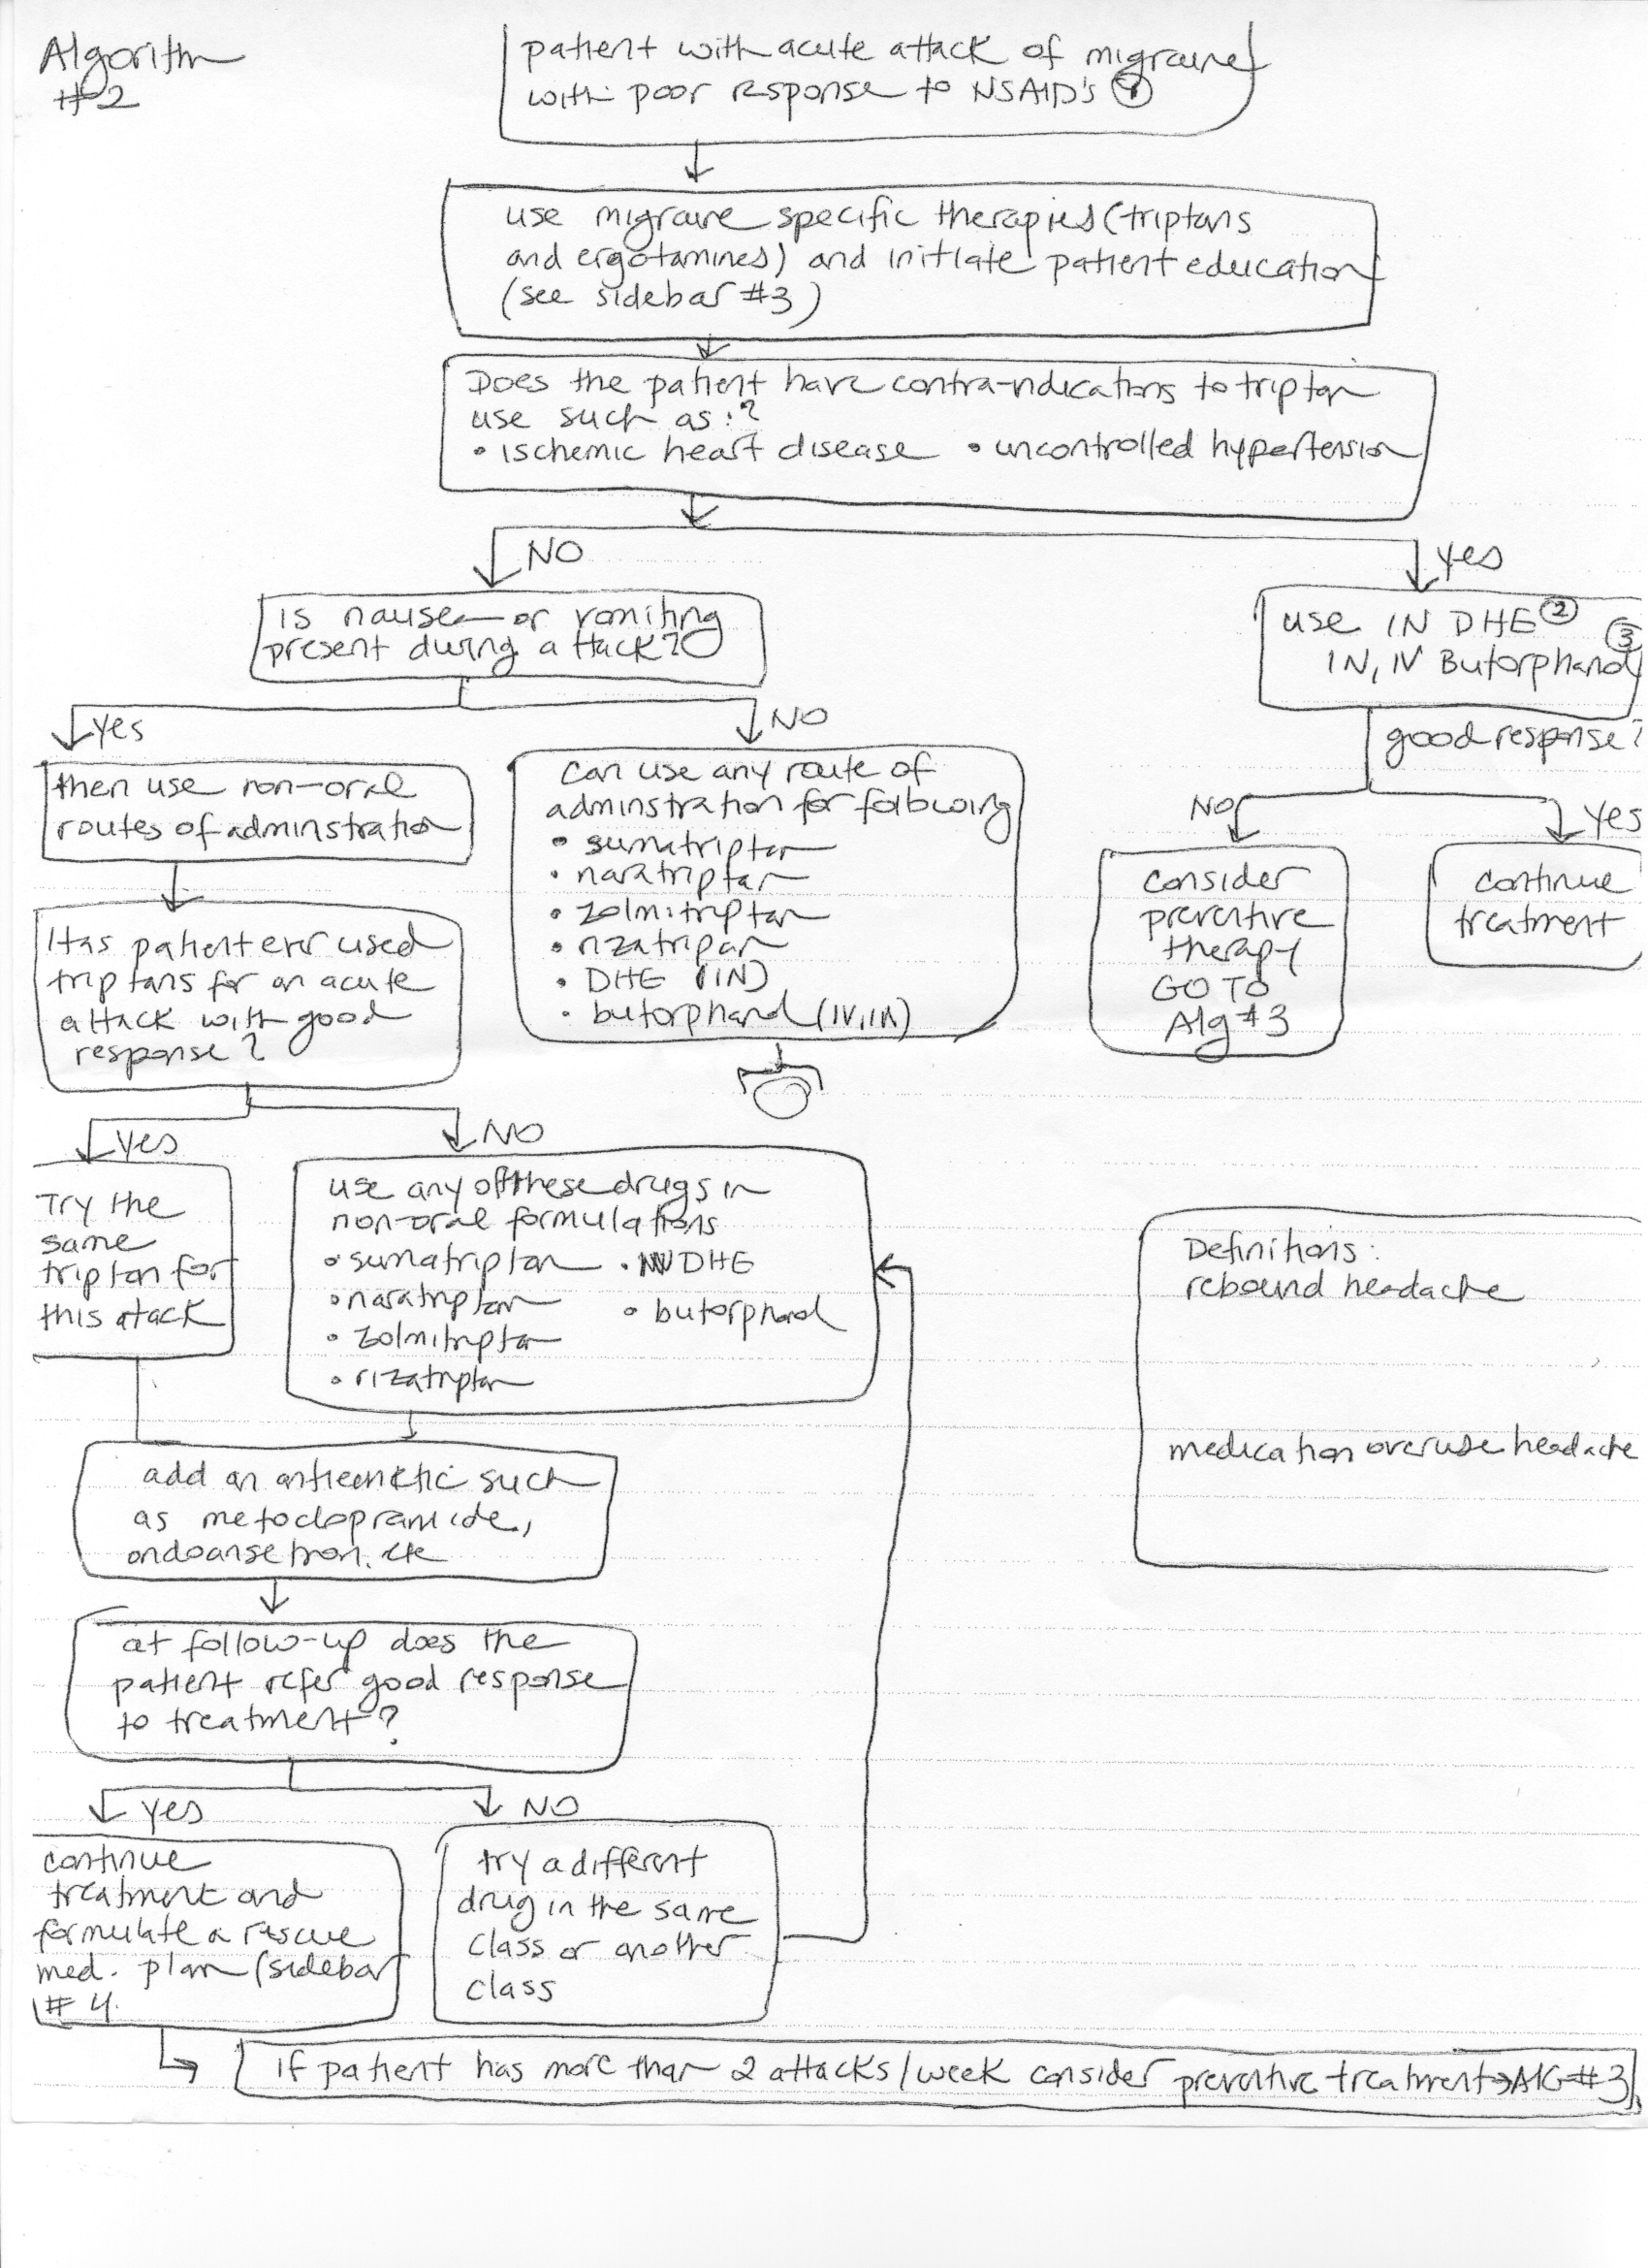 Algorithm
#2
patient with acute attack of migraine
with poor response to NSAID's 1
use migraine specific therapies (triptans
and ergotamines) and initiate patient education
(see sidebar #3)
Does the patient have contra-indications to triptan
use such as:?
• ischemic heart disease • uncontrolled hypertension
NO
yes
is nausea or vomiting
present during attack?
use IN DHE 2
IN, IV Butorphanol 3
good response?
yes
NO
then use non-oral
routes of adminstration
can use any route of
adminstration for following
• sumatriptan
• naratriptan
• zolmitriptan
• rizatripan
• DHE (IN)
• butorphanol (IV, IN)
NO
yes
consider
preventive
therapy
GO TO
Alg #3
continue
treatment
Has patient ever used
triptans for an acute
attack with good
response?
yes
NO
Try the
same
triptan for
this attack
use any of these drugs in
non-oral formulations
• sumatriptan • IN DHE
• naratriptan • butorphanol
• zolmitriptan
• rizatriptan
Definitions:
rebound headache
medication overuse headache
add an antiemetic such
as metoclopramide,
ondoansetron, etc
at follow-up does the
patient refer good response
to treatment?
yes
NO
continue
treatment and
formulate a rescue
med. plan (sidebar
# 4.
try a different
drug in the same
class or another
class
if patient has more than 2 attacks/week consider preventive treatment → AlG #3